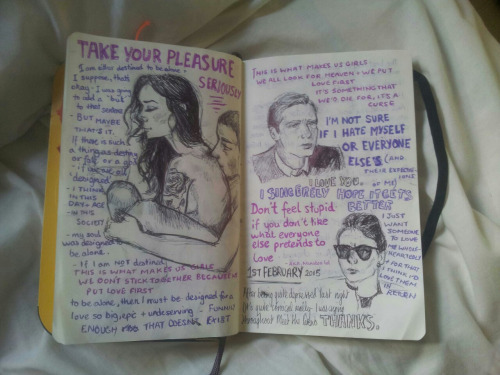 TAKE YOUR PLEASURE
SERIOUSLY
I am either destined to be alone -
I suppose, that's
okay - I was going
to add a "but"
to that sentence
- BUT MAYBE
THAT'S IT.
If there is such
a thing as destiny
designed
- I THINK
IN THIS
DAY + AGE
- IN THIS
SOCIETY
- my soul
was designed
to be alone.
- If I am NOT destined
THIS IS WHAT MAKES US GIRLS
WE DON'T STICK TOGETHER BECAUSE WE
PUT LOVE FIRST
to be alone, then I must be designed for a
love so big, epic + undeserving - FUNNILY
ENOUGH THAT DOESN'T EXIST
THIS IS WHAT MAKES US GIRLS
WE ALL LOOK FOR HEAVEN + WE PUT
LOVE FIRST
IT'S SOMETHING THAT
WE'D DIE FOR, IT'S A
CURSE
I'M NOT SURE
IF I HATE MYSELF
OR EVERYONE
ELSE (AND
THEIR EXPECTATIONS
OF ME)
I LOVE YOU.
I SINCERELY HOPE IT GETS
BETTER
Don't feel stupid
if you don't like
what everyone
else pretends to
Love
1ST FEBRUARY 2015
I JUST
WANT
SOMEONE
TO LOVE
ME WHOLE-
HEARTEDLY
+ FOR THAT
I THINK I'D
LOVE THEM
IN RETURN
After being quite depressed last night
it's quite unreal waking up again
throughout THANKS.